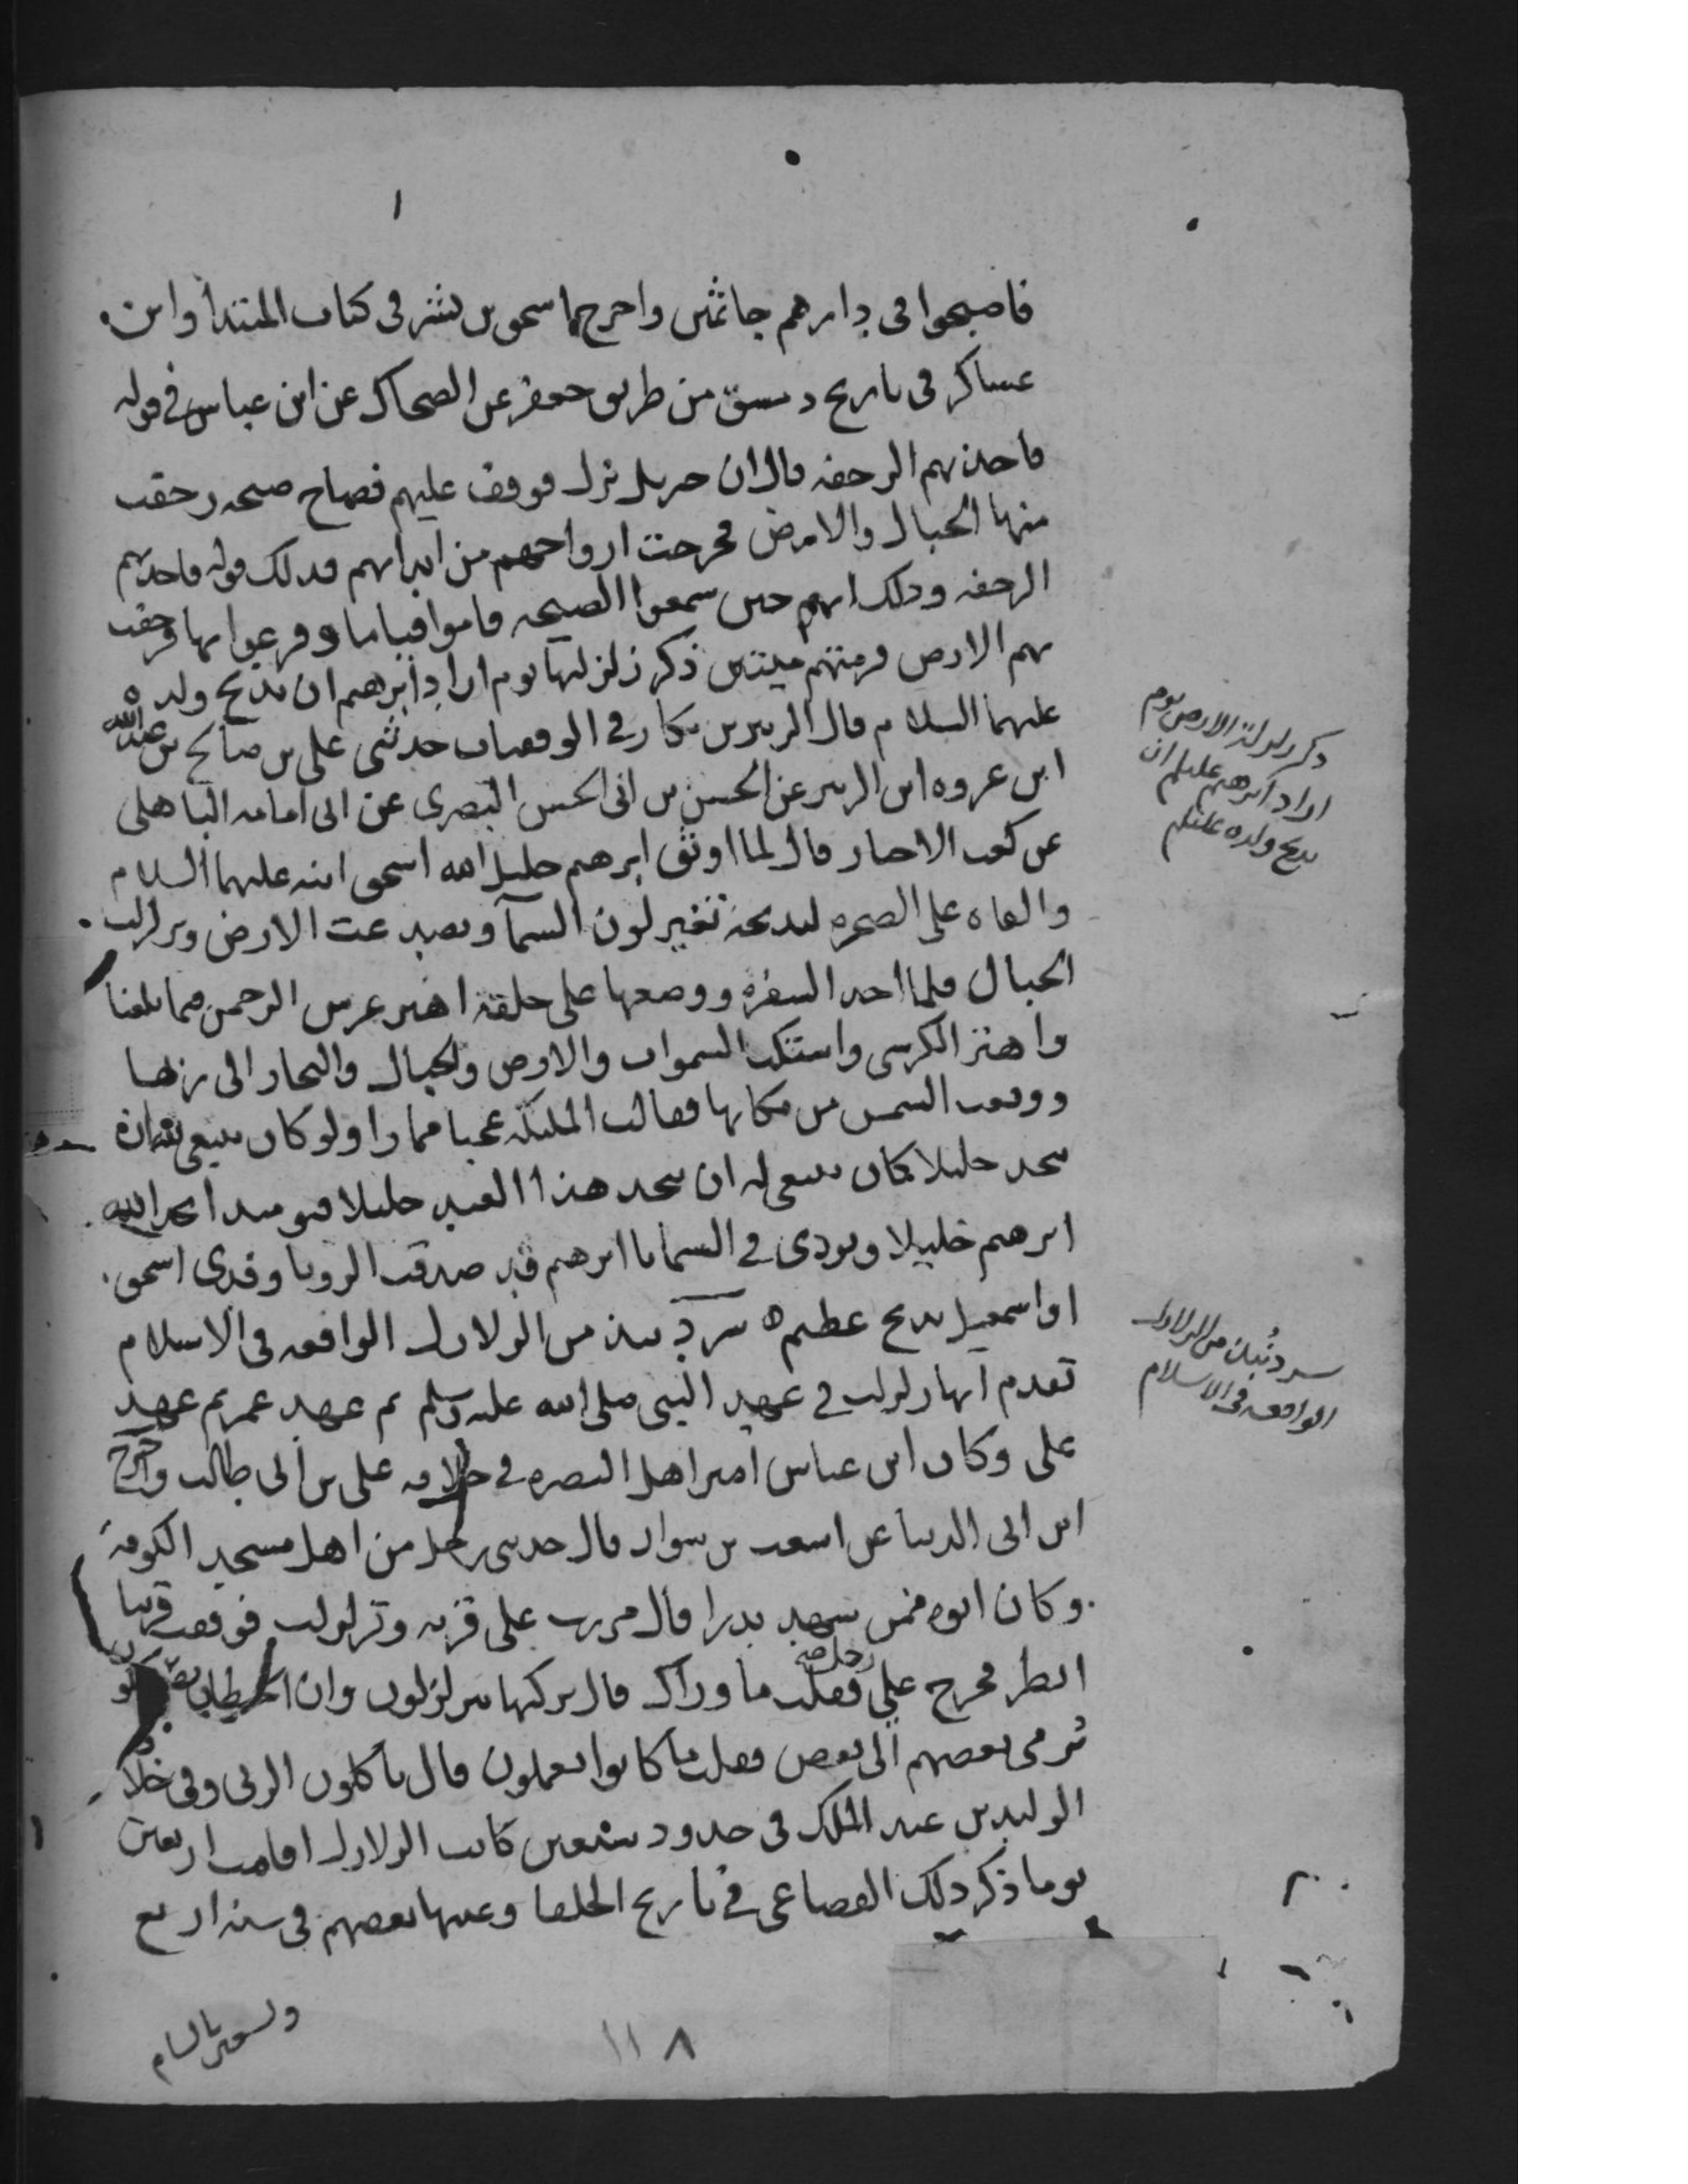 فاصبحوا في دارهم جاثمين واخرج اسحق بن بشر في كتاب المبتدأ وابن
عساكر في تاريخ دمشق من طريق جعفر عن الضحاك عن ابن عباس في قوله
فاخذتهم الرجفه قال ان جبريل نزل فوقف عليهم فصاح صيحه رجفت
منها الجبال والارض فخرجت ارواحهم من ابدانهم فذلك قوله فاخذتهم
الرجفه وذلك انهم حين سمعوا الصيحه قاموا قياما وفزعوا بها فرجفت
بهم الارض فرمتهم ميتين ذكر زلزلتها يوم اراد ابرهيم ان يذبح ولده
عليهما السلام قال الزبير بن بكار في الموفقيات حدثني علي بن صالح بن عبد الله
ابن عروه ابن الزبير عن الحسن بن ابي الحسن البصري عن ابي امامه الباهلي
عن كعب الاحبار قال لما اوثق ابرهيم خليل الله اسحق ابنه عليهما السلام
والقاه على الصخره ليذبحه تغير لون السمآ وتصدعت الارض وتزلزلت
الجبال فلما اخذ الشفره ووضعها على حلقه اهتز عرش الرحمن فيما بلغنا
واهتز الكرسي واشتكت السموات والارض والجبال والبحار الى ربها
ووقفت الشمس من مكانها فقالت الملئكه عجبا مما راوا لو كان ينبغي لله ان
يتخذ خليلا لكان ينبغي له ان يتخذ هذا العبد خليلا فيومئذ اتخذ الله
ابرهيم خليلا ونودي في السما يا ابرهيم قد صدقت الرويا وفدي اسحق
او اسمعيل بذبح عظيم ه سرد نبذ من الزلازل الواقعه في الاسلام
تقدم انها زلزلت في عهد النبي صلى الله عليه وسلم ثم عهد عمر ثم عهد
علي وكان ابن عباس امير اهل البصره في خلافه علي بن ابي طالب واخرج
ابن ابي الدنيا عن اشعث بن سوار قال حدثني رجل من اهل مسجد الكوفه
وكان ابوه ممن شهد بدرا قال مررت على قريه وتزلزلت فوقفت قريبا
انظر فخرج علي رجل صح فقلت ما وراك قال تركتها تتزلزلون وان الحيطان
ترمي بعضهم الى بعض فقلت ما كانوا يعملون قال ياكلون الربى وفي خلا
الوليد بن عبد الملك في حدود تسعين كانت الزلازل اقامت اربعين
يوما ذكر ذلك القضاعي في تاريخ الخلفا وعينها بعضهم في سنه اربع
وتسعين بالشام
ذكر زلزلة الارض يوم
اراد ابرهيم عليلم ان
يذبح ولده عليلم
سرد نبذ من الزلازل
الواقعه في الاسلام
١١٨